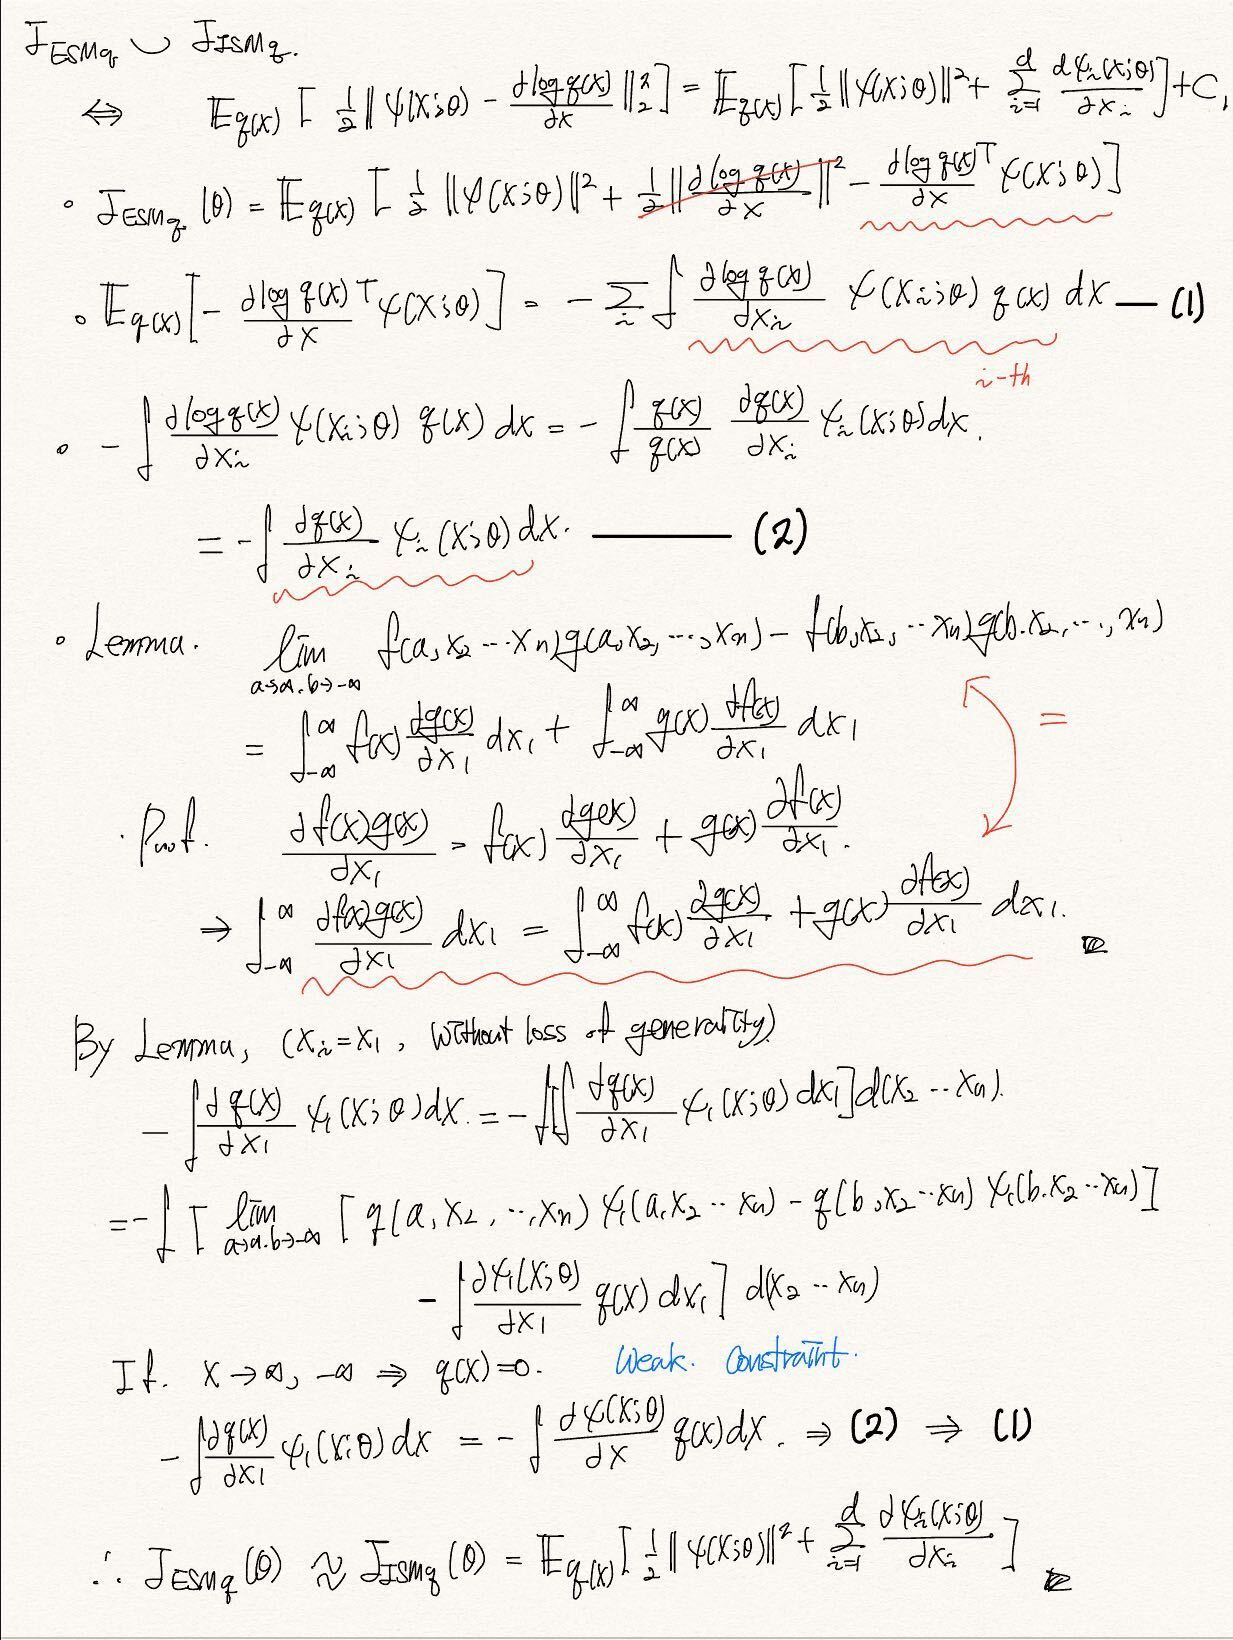 J_ESMq ⌣ J_ISMq.
⇔ 𝔼_q(x) [ 1/2 ‖ ψ(x;θ) - ∂log q(x)/∂x ‖²₂ ] = 𝔼_q(x) [ 1/2 ‖ψ(x;θ)‖² + Σ_{i=1}^{d} dψ_i(x;θ)/∂x_i ] + C,
∘ J_ESMq (θ) = 𝔼_q(x) [ 1/2 ‖ψ(x;θ)‖² + 1/2 ‖∂log q(x)/∂x‖² - ∂log q(x)/∂x ᵀ ψ(x;θ) ]
∘ 𝔼_q(x) [ - ∂log q(x)/∂x ᵀ ψ(x;θ) ] = - Σ_i ∫ ∂log q(x)/∂x_i ψ(x_i;θ) q(x) dx — (1)
i-th
∘ - ∫ ∂log q(x)/∂x_i ψ(x_i;θ) q(x) dx = - ∫ q(x)/q(x) ∂q(x)/∂x_i ψ_i(x;θ) dx.
= - ∫ ∂q(x)/∂x_i ψ_i (x;θ) dx. —— (2)
∘ Lemma. lim_{a→∞, b→-∞} f(a, x₂ ⋯ xₙ) g(a, x₂, ⋯, xₙ) - f(b, x₂, ⋯ xₙ) g(b. x₂, ⋯, xₙ)
= ∫_{-∞}^{∞} f(x) ∂g(x)/∂x₁ dx₁ + ∫_{-∞}^{∞} g(x) ∂f(x)/∂x₁ dx₁
=
· Proof. ∂f(x)g(x)/∂x₁ = f(x) ∂g(x)/∂x₁ + g(x) ∂f(x)/∂x₁.
→ ∫_{-∞}^{∞} ∂f(x)g(x)/∂x₁ dx₁ = ∫_{-∞}^{∞} f(x) ∂g(x)/∂x₁ + g(x) ∂f(x)/∂x₁ dx₁.
By Lemma, (x_i = x₁, without loss of generality)
- ∫ ∂q(x)/∂x₁ ψ₁(x;θ) dx. = - ∫[∫ ∂q(x)/∂x₁ ψ₁(x;θ) dx₁] d(x₂ ⋯ xₙ).
= - ∫ [ lim_{a→∞. b→-∞} [ q(a, x₂, ⋯, xₙ) ψ₁(a, x₂ ⋯ xₙ) - q(b, x₂ ⋯ xₙ) ψ₁(b. x₂ ⋯ xₙ) ]
- ∫ ∂ψ₁(x;θ)/∂x₁ q(x) dx₁ ] d(x₂ ⋯ xₙ)
If. x → ∞, -∞ ⇒ q(x) = 0. Weak. Constraint.
- ∫ ∂q(x)/∂x₁ ψ₁(x;θ) dx = - ∫ ∂ψ(x;θ)/∂x q(x) dx. ⇒ (2) ⇒ (1)
∴ J_ESMq (θ) ≈ J_ISMq (θ) = 𝔼_q(x) [ 1/2 ‖ψ(x;θ)‖² + Σ_{i=1}^{d} ∂ψ_i(x;θ)/∂x_i ]